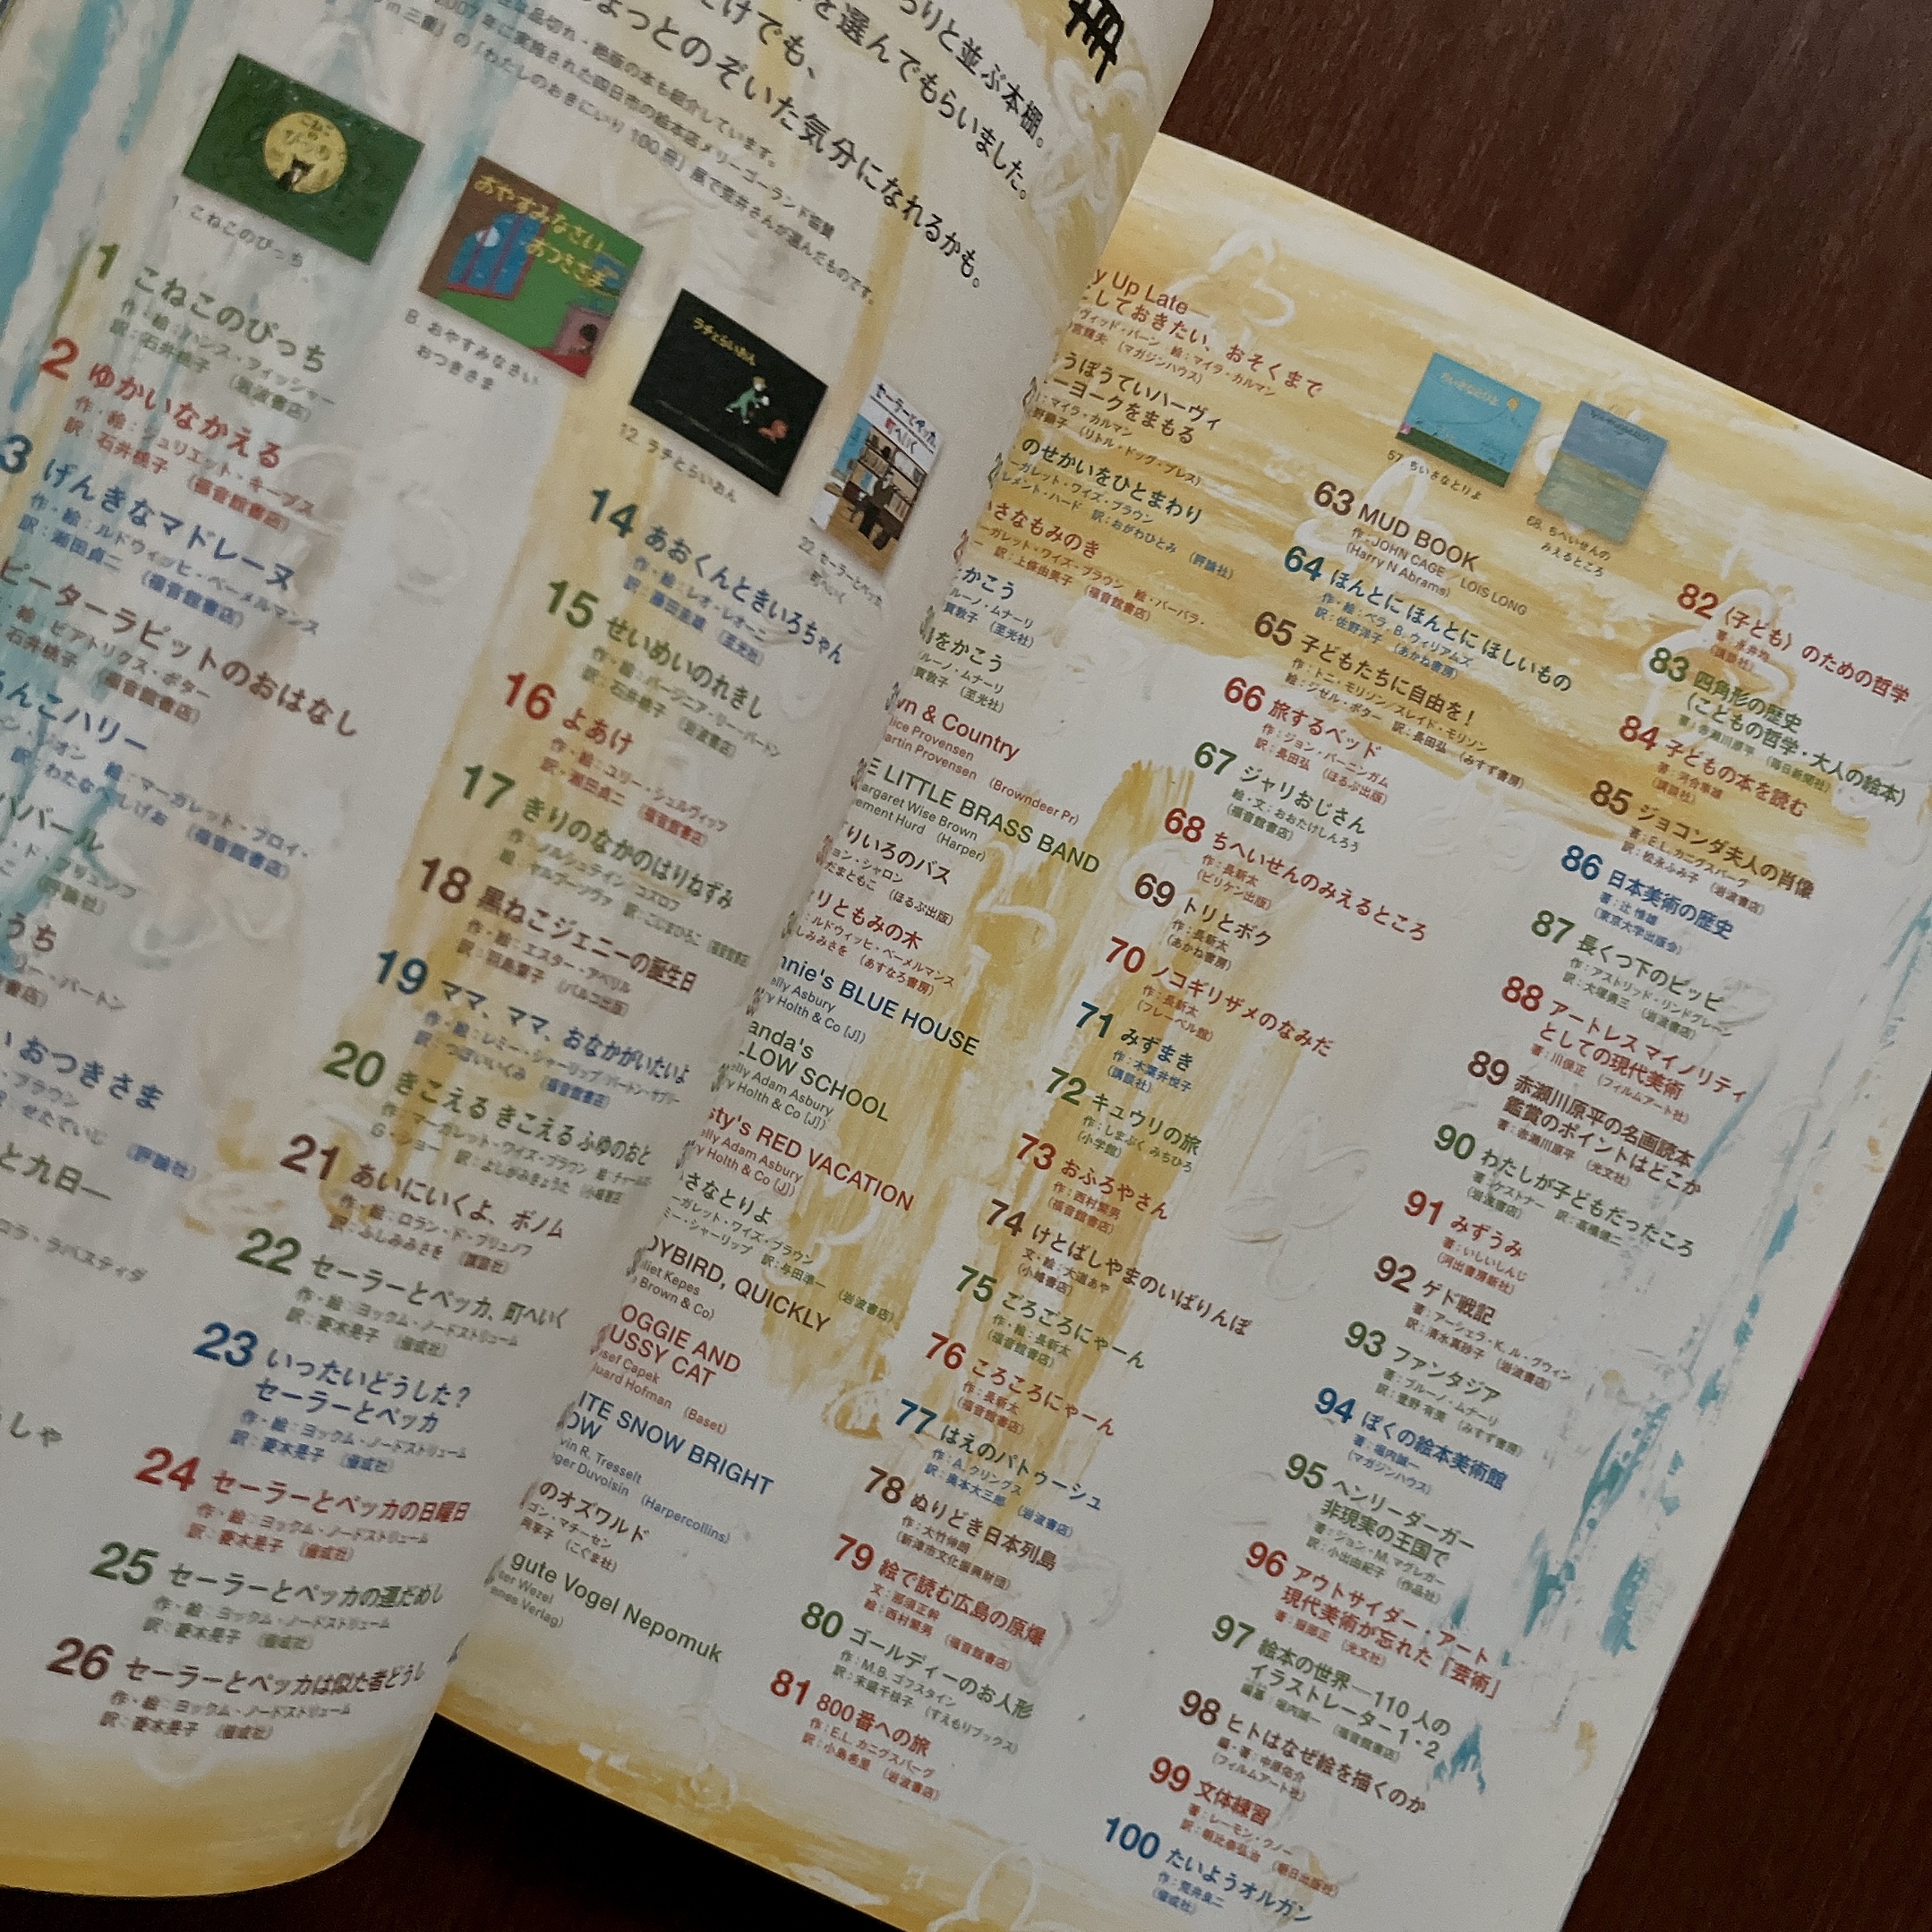 冊
りと並ぶ本棚。
を選んでもらいました。
だけでも、
ちょっとのぞいた気分になれるかも。
品切れ・絶版の本も紹介しています。
2007年に実施された四日市の絵本店メリーゴーランド協賛
in 三重」の「わたしのおきにいり100冊」展で荒井さんが選んだものです。
こねこのぴっち
1. こねこのぴっち
おやすみなさい
おつきさま
8. おやすみなさい
おつきさま
ラチとらいおん
12. ラチとらいおん
セーラーとペッカ
町へいく
22. セーラーとペッカ、
町へいく
1 こねこのぴっち
作・絵:ハンス・フィッシャー
訳:石井桃子 (岩波書店)
2 ゆかいなかえる
作・絵:ジュリエット・キープス
訳:石井桃子 (福音館書店)
3 げんきなマドレーヌ
作・絵:ルドウィッヒ・ベーメルマンス
訳:瀬田貞二 (福音館書店)
ピーターラビットのおはなし
絵:ビアトリクス・ポター
石井桃子 (福音館書店)
ろんこハリー
ジオン 絵:マーガレット・ブロイ・
訳:わたなべしげお (福音館書店)
ババール
・ド・ブリュノフ
(評論社)
うち
リー・バートン
書店)
おつきさま
ブラウン
訳:せたていじ (評論社)
と九日―
ラ・ラバスティダ
しゃ
14 あおくんときいろちゃん
作・絵:レオ・レオーニ
訳:藤田圭雄 (至光社)
15 せいめいのれきし
作・絵:バージニア・リー・バートン
訳:石井桃子 (岩波書店)
16 よあけ
作・絵:ユリー・シュルヴィッツ
訳:瀬田貞二 (福音館書店)
17 きりのなかのはりねずみ
作:ノルシュテイン/コズロフ
絵:ヤルブーソヴァ 訳:こじまひろこ (福音館書店
18 黒ねこジェニーの誕生日
作・絵:エスター・アベリル
訳:羽島葉子 (パルコ出版)
19 ママ、ママ、おなかがいたいよ
作・絵:レミー・シャーリップ/バートン・サプリー
訳:つぼいいくみ (福音館書店)
20 きこえる きこえる ふゆのおと
作:マーガレット・ワイズ・ブラウン 絵:チャールズ
G・ショー 訳:よしがみきょうた (小峰書店
21 あいにいくよ、ボノム
作・絵:ロラン・ド・ブリュノフ
訳:ふしみみさを (講談社)
22 セーラーとペッカ、町へいく
作・絵:ヨックム・ノードストリューム
訳:菱木晃子 (偕成社)
23 いったいどうした?
セーラーとペッカ
作・絵:ヨックム・ノードストリューム
訳:菱木晃子 (偕成社)
24 セーラーとペッカの日曜日
作・絵:ヨックム・ノードストリューム
訳:菱木晃子 (偕成社)
25 セーラーとペッカの運だめし
作・絵:ヨックム・ノードストリューム
訳:菱木晃子 (偕成社)
26 セーラーとペッカは似た者どうし
作・絵:ヨックム・ノードストリューム
訳:菱木晃子 (偕成社)
y Up Late
しておきたい、おそくまで
ヴィッド・バーン 絵:マイラ・カルマン
(マガジンハウス)
うぼうていハーヴィ
ーヨークをまもる
:マイラ・カルマン
(リトル・ドッグ・プレス)
のせかいをひとまわり
ーガレット・ワイズ・ブラウン
レメント・ハード 訳:おがわひとみ (評論社)
さなもみのき
ーガレット・ワイズ・ブラウン 絵・バーバラ・
訳:上條由美子 (福音館書店)
かこう
ルーノ・ムナーリ
賀敦子 (至光社)
をかこう
ルーノ・ムナーリ
賀敦子 (至光社)
wn & Country
ice Provensen
artin Provensen (Browndeer Pr)
E LITTLE BRASS BAND
argaret Wise Brown
ement Hurd (Harper)
りいろのバス
ョン・シャロン
だまともこ (ほるぷ出版)
リともみの木
ルドウィッヒ・ベーメルマンス
しみみさを (あすなろ書房)
nnie's BLUE HOUSE
elly Asbury
y Holth & Co [J])
anda's
LLOW SCHOOL
elly Adam Asbury
y Holth & Co [J])
sty's RED VACATION
elly Adam Asbury
y Holth & Co [J])
さなとりよ
ーガレット・ワイズ・ブラウン
ミー・シャーリップ 訳:与田凖一 (岩波書店)
DYBIRD, QUICKLY
liet Kepes
Brown & Co)
OGGIE AND
USSY CAT
sef Capek
uard Hofman (Baset)
ITE SNOW BRIGHT
OW
vin R. Tresselt
ger Duvoisin (Harpercollins)
のオズワルド
ゴン・マチーセン
岡享子 (こぐま社)
gute Vogel Nepomuk
ser Wezel
mes Verlag)
ちいさなとりよ
57. ちいさなとりよ
68. ちへいせんの
みえるところ
63 MUD BOOK
作・JOHN CAGE / LOIS LONG
(Harry N Abrams)
64 ほんとに ほんとに ほしいもの
作・絵:ベラ．B．ウィリアムズ
訳:佐野洋子 (あかね書房)
65 子どもたちに自由を!
作:トニ・モリソン/スレイド・モリソン
絵:ジゼル・ポター 訳:長田弘 (みすず書房)
66 旅するベッド
作:ジョン・バーニンガム
訳:長田弘 (ほるぷ出版)
67 ジャリおじさん
絵・文:おおたけしんろう
(福音館書店)
68 ちへいせんのみえるところ
作:長新太
(ビリケン出版)
69 トリとボク
作:長新太
(あかね書房)
70 ノコギリザメのなみだ
作:長新太
(フレーベル館)
71 みずまき
作:木葉井悦子
(講談社)
72 キュウリの旅
作:しまぶくみちひろ
(小学館)
73 おふろやさん
作:西村繁男
(福音館書店)
74 けとばしやまのいばりんぼ
文・絵:大道あや
(小峰書店)
75 ごろごろにゃーん
作・絵:長新太
(福音館書店)
76 ころころにゃーん
作:長新太
(福音館書店)
77 はえのパトゥーシュ
作:A.クリングス
訳:奥本大三郎 (岩波書店)
78 ぬりどき日本列島
作:大竹伸朗
(新津市文化振興財団)
79 絵で読む広島の原爆
文:那須正幹
絵:西村繁男 (福音館書店)
80 ゴールディーのお人形
作:M.B.ゴフスタイン
訳:末盛千枝子 (すえもりブックス)
81 800番への旅
作:E.L.カニグスバーグ
訳:小島希里 (岩波書店)
82 〈子ども〉のための哲学
著:永井均
(講談社)
83 四角形の歴史
(こどもの哲学・大人の絵本)
著:赤瀬川原平 (毎日新聞社)
84 子どもの本を読む
著:河合隼雄
(講談社)
85 ジョコンダ夫人の肖像
著:E.L.カニグスバーグ
訳:松永ふみ子 (岩波書店)
86 日本美術の歴史
著:辻惟雄
(東京大学出版会)
87 長くつ下のピッピ
作:アストリッド・リンドグレーン
訳:大塚勇三 (岩波書店)
88 アートレス マイノリティ
としての現代美術
著:川俣正 (フィルムアート社)
89 赤瀬川原平の名画読本
鑑賞のポイントはどこか
著:赤瀬川原平 (光文社)
90 わたしが子どもだったころ
著:ケストナー 訳:高橋健二
(岩波書店)
91 みずうみ
著:いしいしんじ
(河出書房新社)
92 ゲド戦記
著:アーシュラ・K.ル・グウィン
訳:清水真砂子 (岩波書店)
93 ファンタジア
著:ブルーノ・ムナーリ
訳:萱野有美 (みすず書房)
94 ぼくの絵本美術館
著:堀内誠一
(マガジンハウス)
95 ヘンリーダーガー
非現実の王国で
著:ジョン・M.マグレガー
訳:小出由紀子 (作品社)
96 アウトサイダー・アート
現代美術が忘れた「芸術」
著:服部正 (光文社)
97 絵本の世界―110人の
イラストレーター1・2
編集:堀内誠一 (福音館書店)
98 ヒトはなぜ絵を描くのか
編・著:中原佑介
(フィルムアート社)
99 文体練習
著:レーモン・クノー
訳:朝比奈弘治 (朝日出版社)
100 たいようオルガン
作:荒井良二
(偕成社)